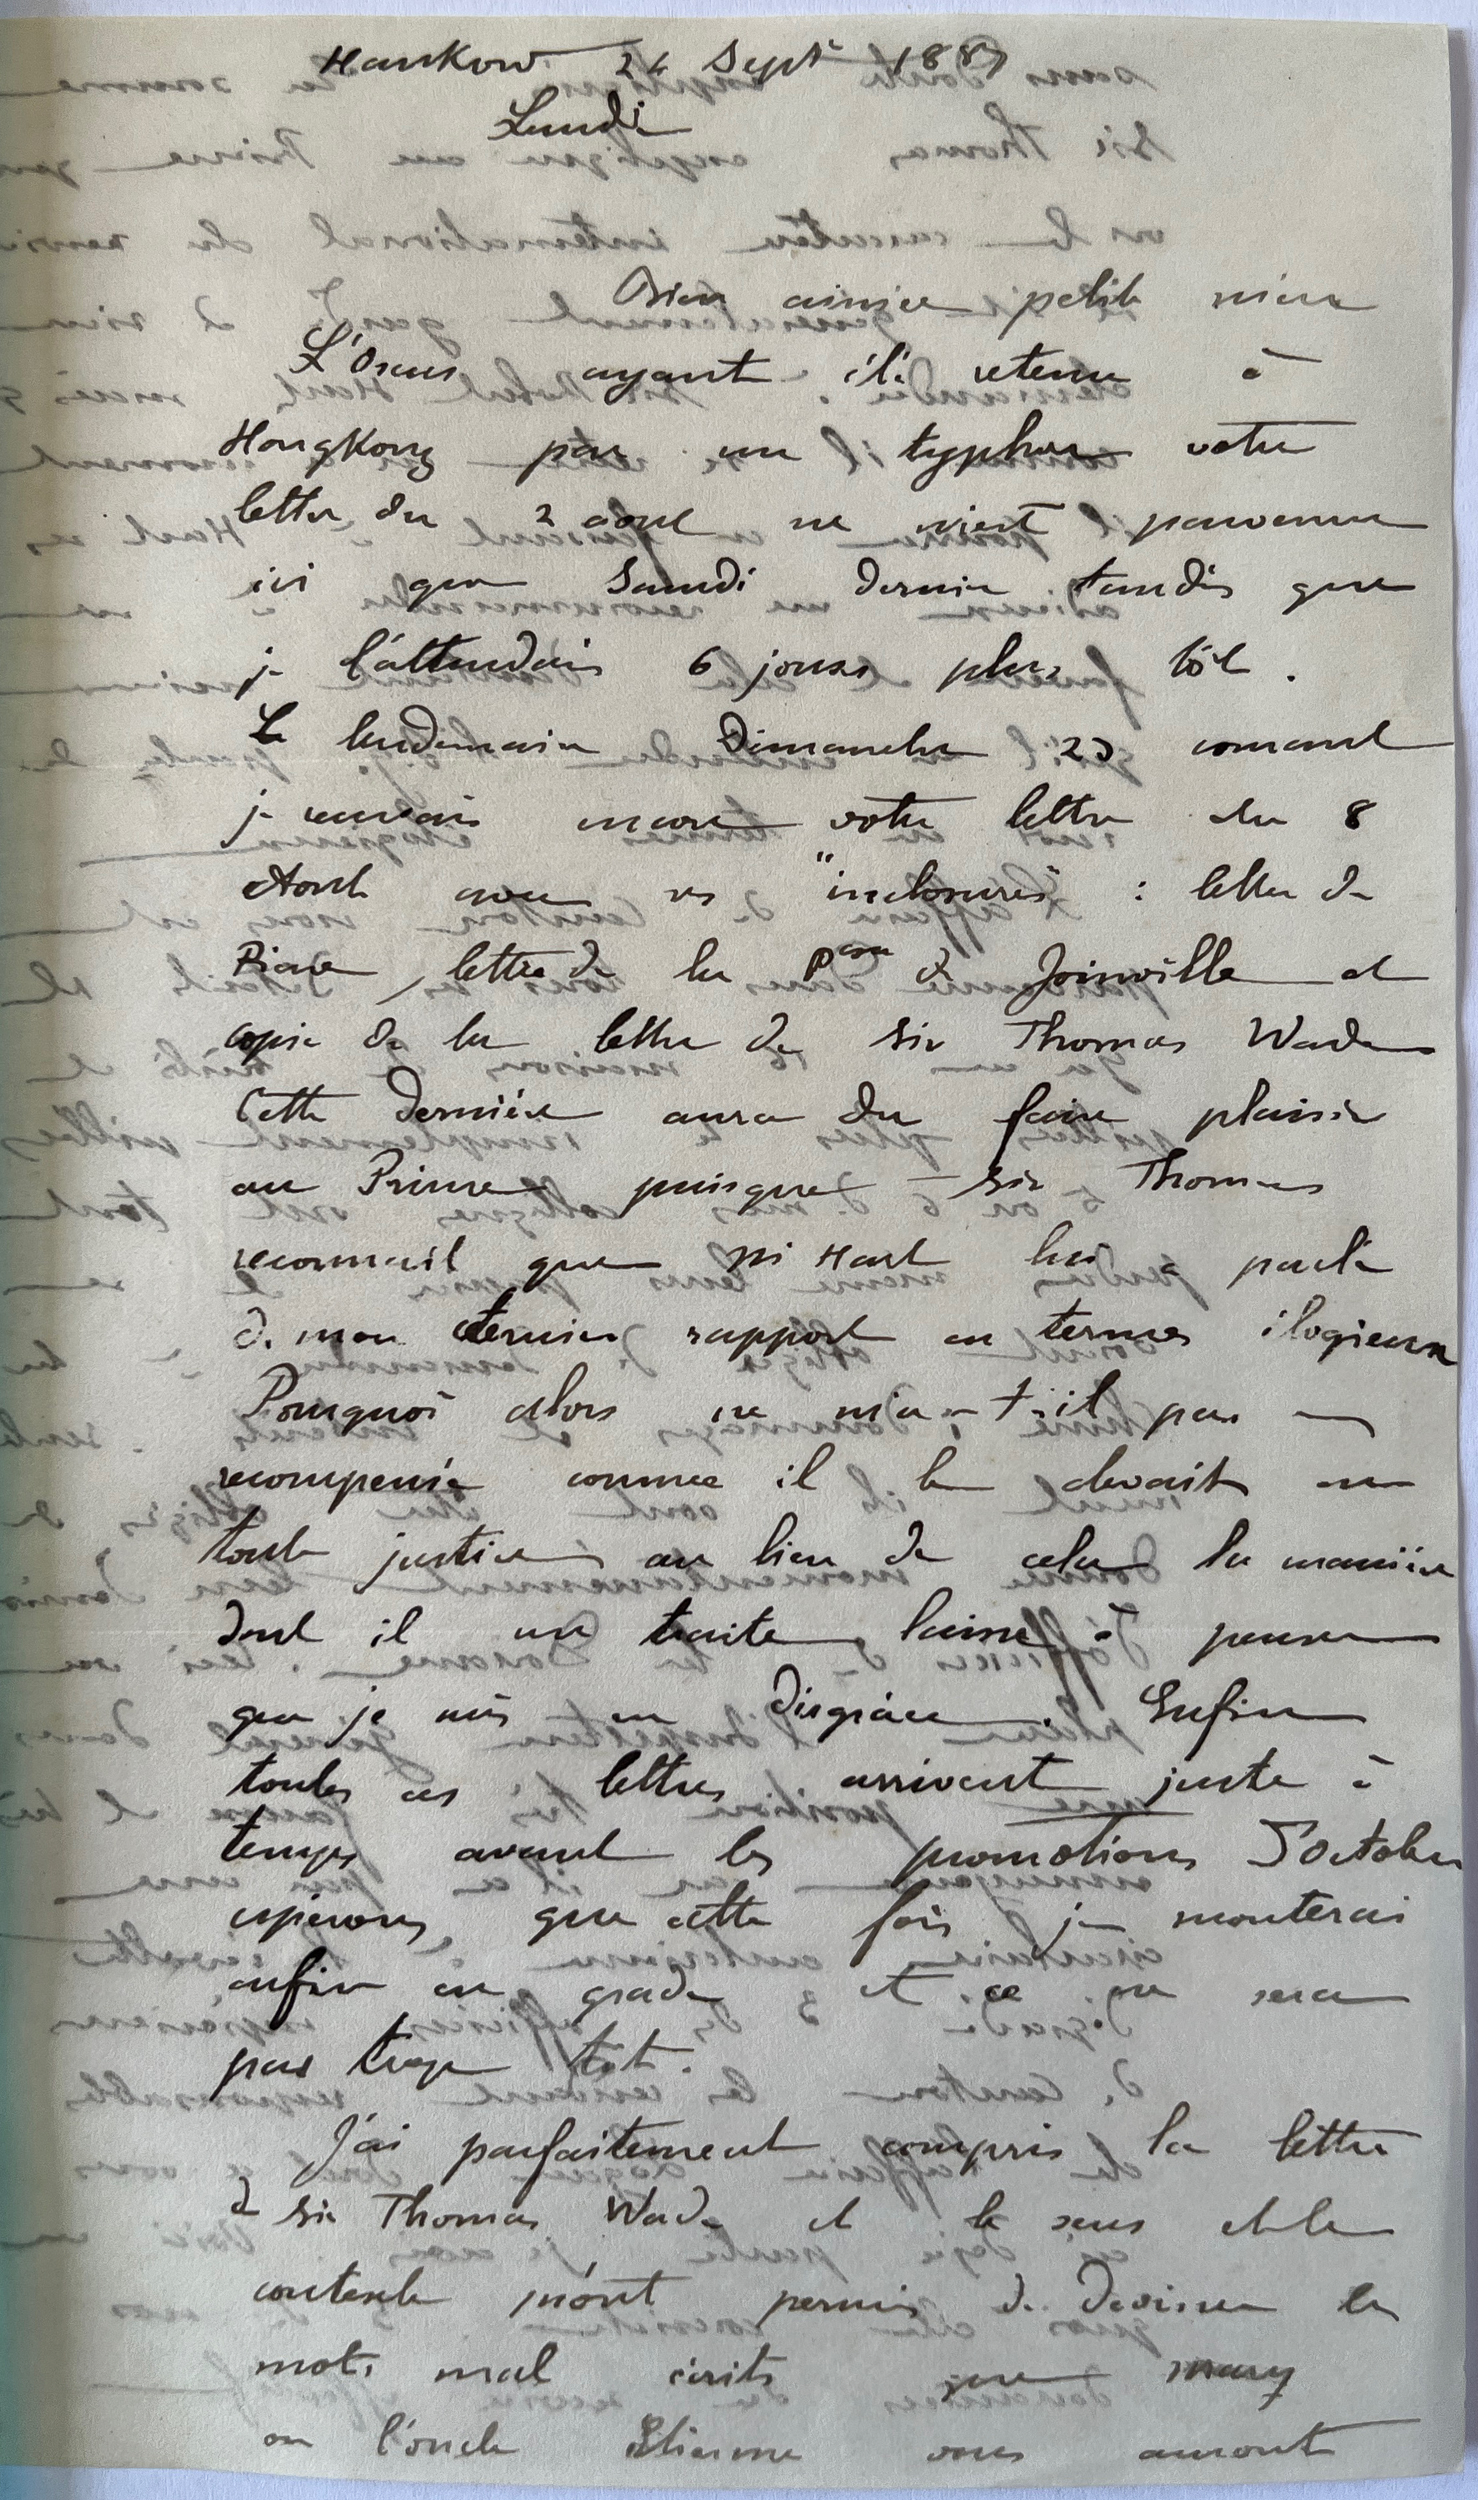 Hankow 24 Sept 1883
Lundi
Bien aimée petite mère
L'Oxus ayant été retenu à
HongKong par un typhon votre
lettre du 2 aout ne vient parvenue
ici que Samedi dernier tandis que
je l'attendais 6 jours plus tôt.
Le lendemain Dimanche 23 courant
je recevais encore votre lettre du 8
Aout avec ses "inclosures" : lettre de
Piave, lettre de la Pcesse de Joinville et
copie de la lettre de Sir Thomas Wade
Cette dernière aura du faire plaisir
au Prince puisque Sir Thomas
reconnait que Mr Hart lui a parlé
de mon dernier rapport en termes élogieux
Pourquoi alors ne m'a-t-il pas
recompensé comme il le devait en
toute justice, au lieu de cela la manière
dont il me traite laisse à penser
que je suis en disgrâce. Enfin
toutes ces lettres arrivent juste à
temps avant les promotions d'octobre
espérons que cette fois je monterai
enfin en grade et ce ne sera
pas trop tot.
J'ai parfaitement compris la lettre
de Sir Thomas Wade et le sens et le
contexte m'ont permis de deviner les
mots mal écrits que Mary
ou l'oncle Etienne vous auront